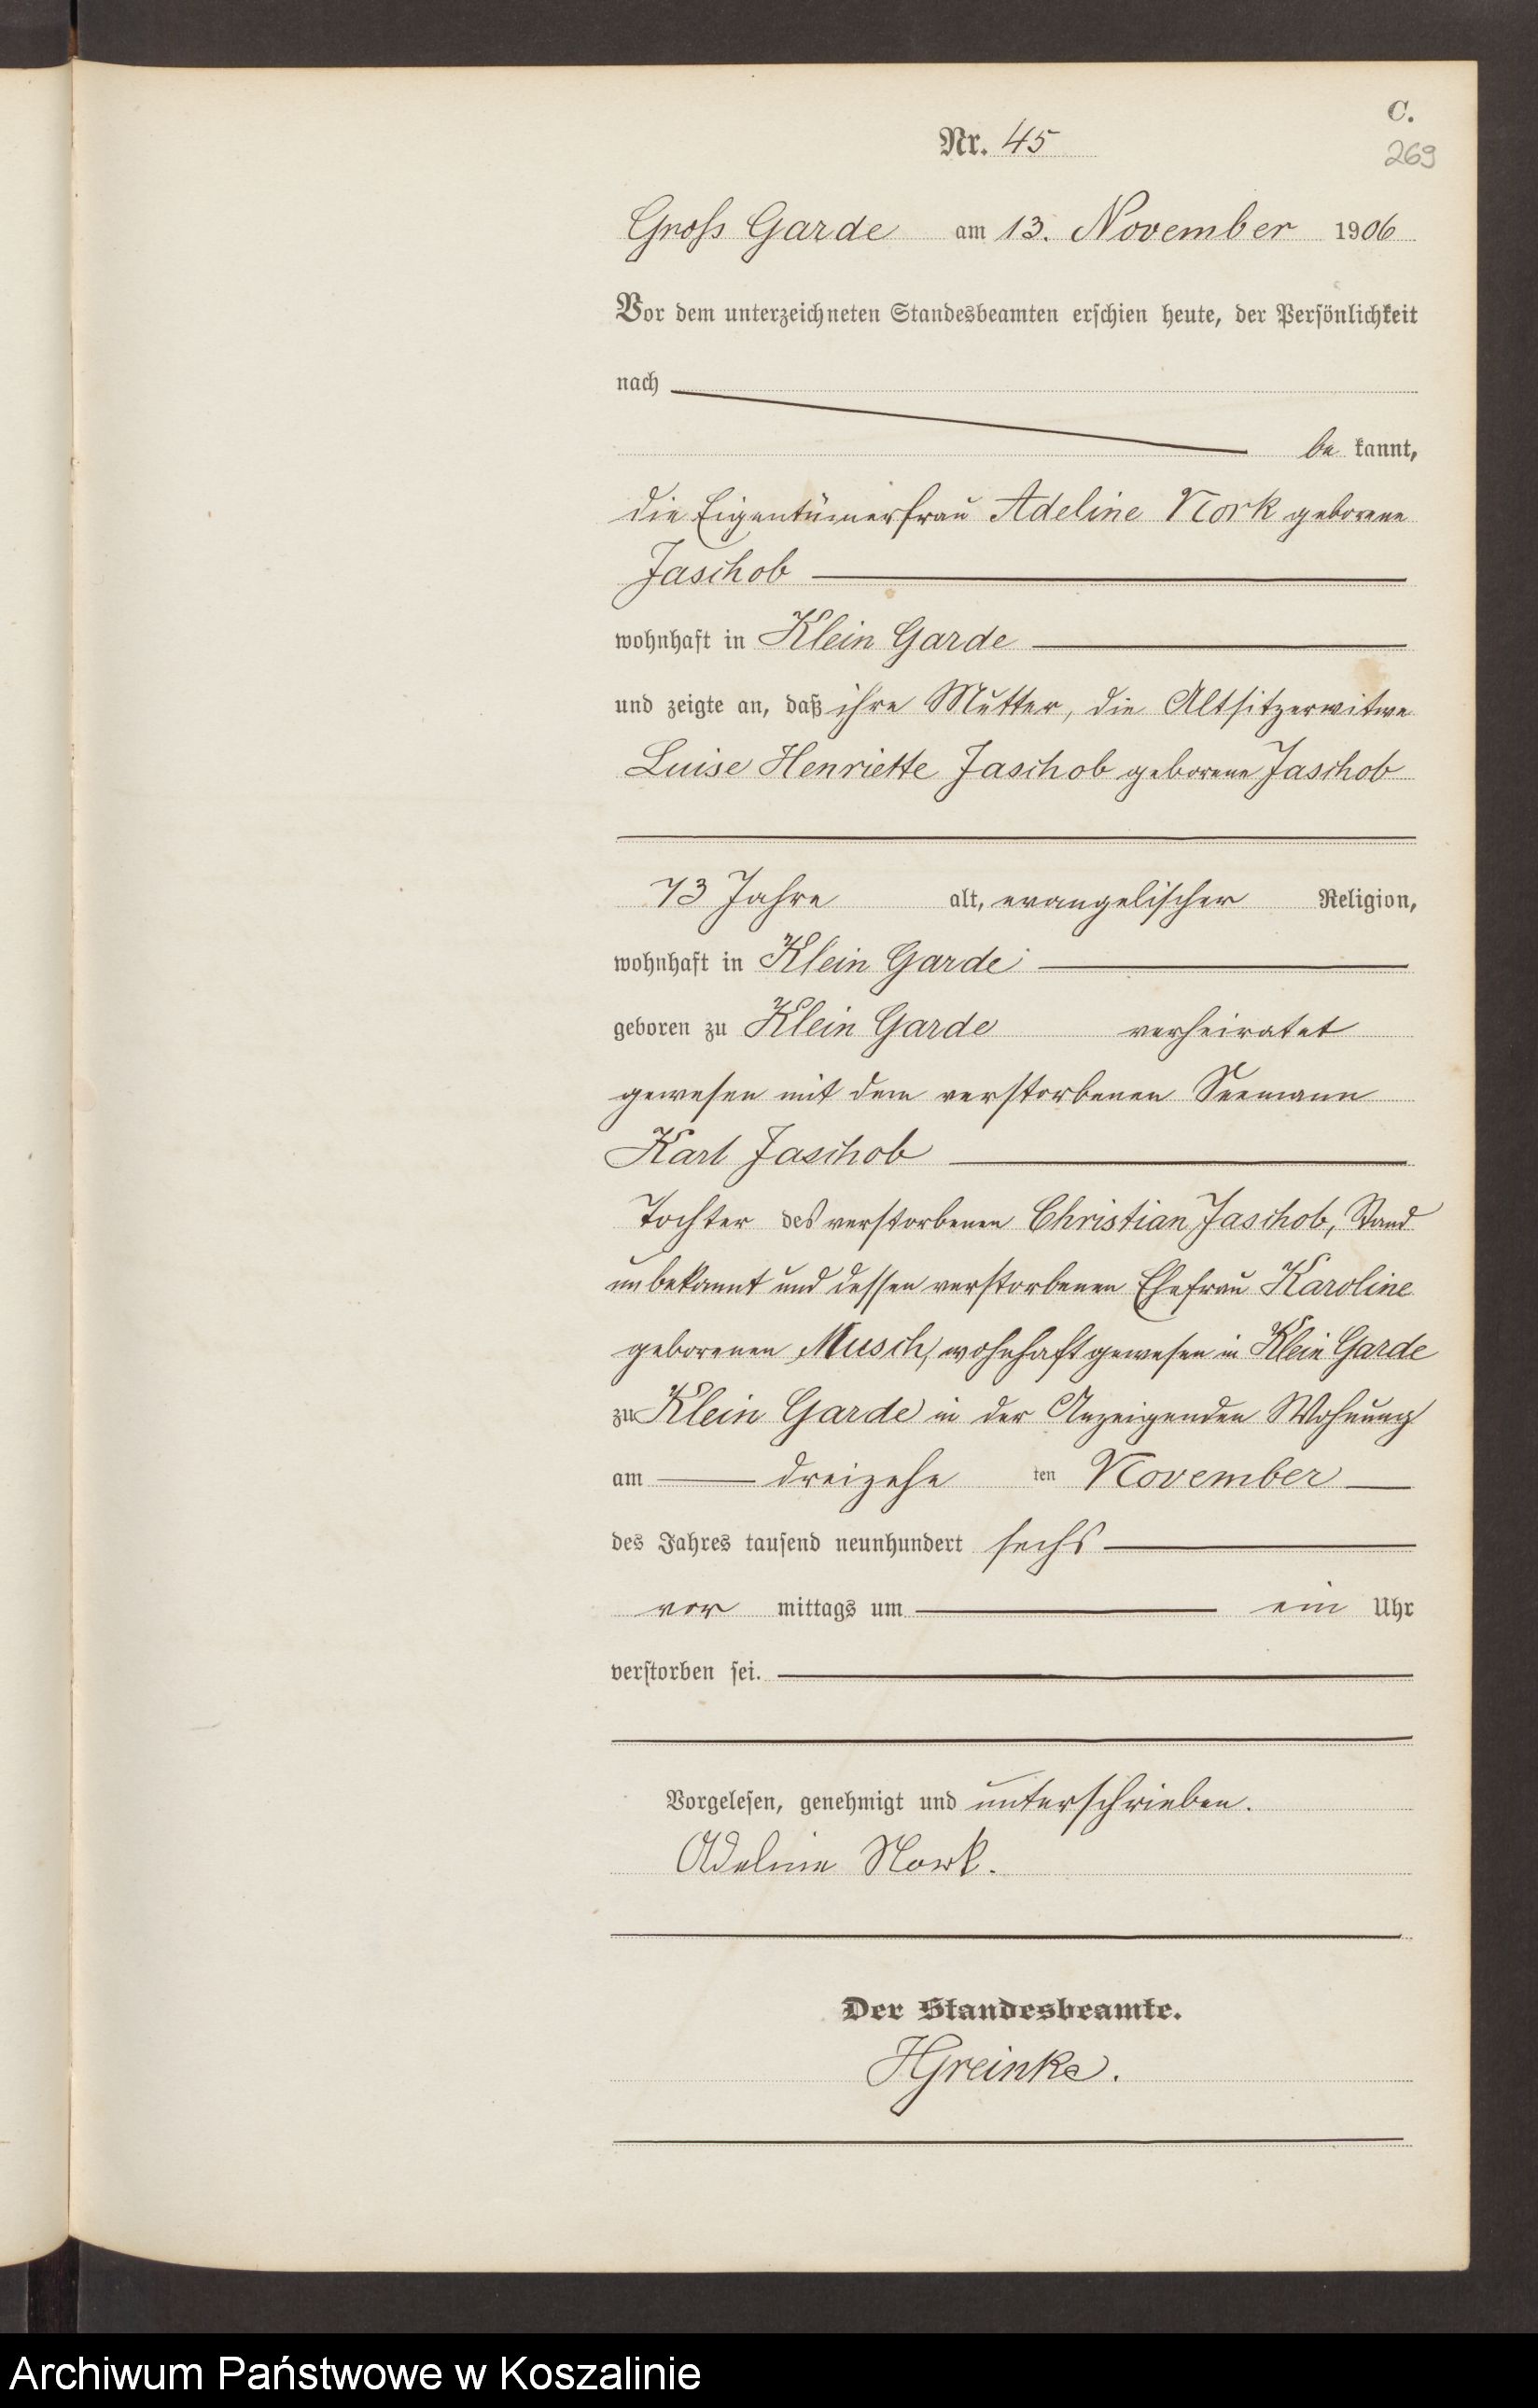 C.
Nr. 45
269
Gross Garde am 13. November 1906
Vor dem unterzeichneten Standesbeamten erschien heute, der Persönlichkeit
nach
be kannt,
die Eigentümerfrau Adeline Nork geborene
Jaschob
wohnhaft in Klein Garde
und zeigte an, daß ihre Mutter, die Altsitzerwitwe
Luise Henriette Jaschob geborene Jaschob
73 Jahre alt, evangelischer Religion,
wohnhaft in Klein Garde
geboren zu Klein Garde verheiratet
gewesen mit dem verstorbenen Seemann
Karl Jaschob
Tochter des verstorbenen Christian Jaschob, Stand
unbekannt und dessen verstorbenen Ehefrau Karoline
geborenen Musch, wohnhaft gewesen in Klein Garde
zu Klein Garde in der Anzeigenden Wohnung
am dreizehn ten November
des Jahres tausend neunhundert sechs
vor mittags um ein Uhr
verstorben sei.
Vorgelesen, genehmigt und unterschrieben.
Adeline Nork.
Der Standesbeamte.
HGreinke.
Archiwum Państwowe w Koszalinie